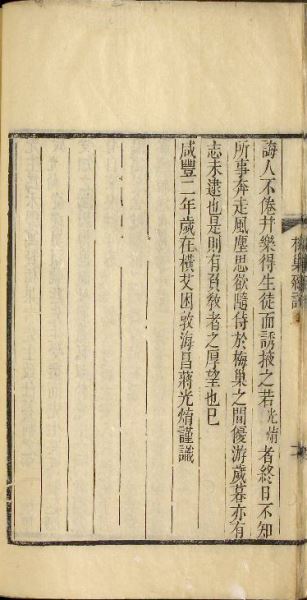 誨人不倦并樂得生徒而誘掖之若光焴者終日不知
所事奔走風塵思欲隨侍於梅巢之間優游歲暮亦有
志未逮也是則有負敎者之厚望也已
咸豐二年歲在橫艾困敦海昌蔣光焴謹識